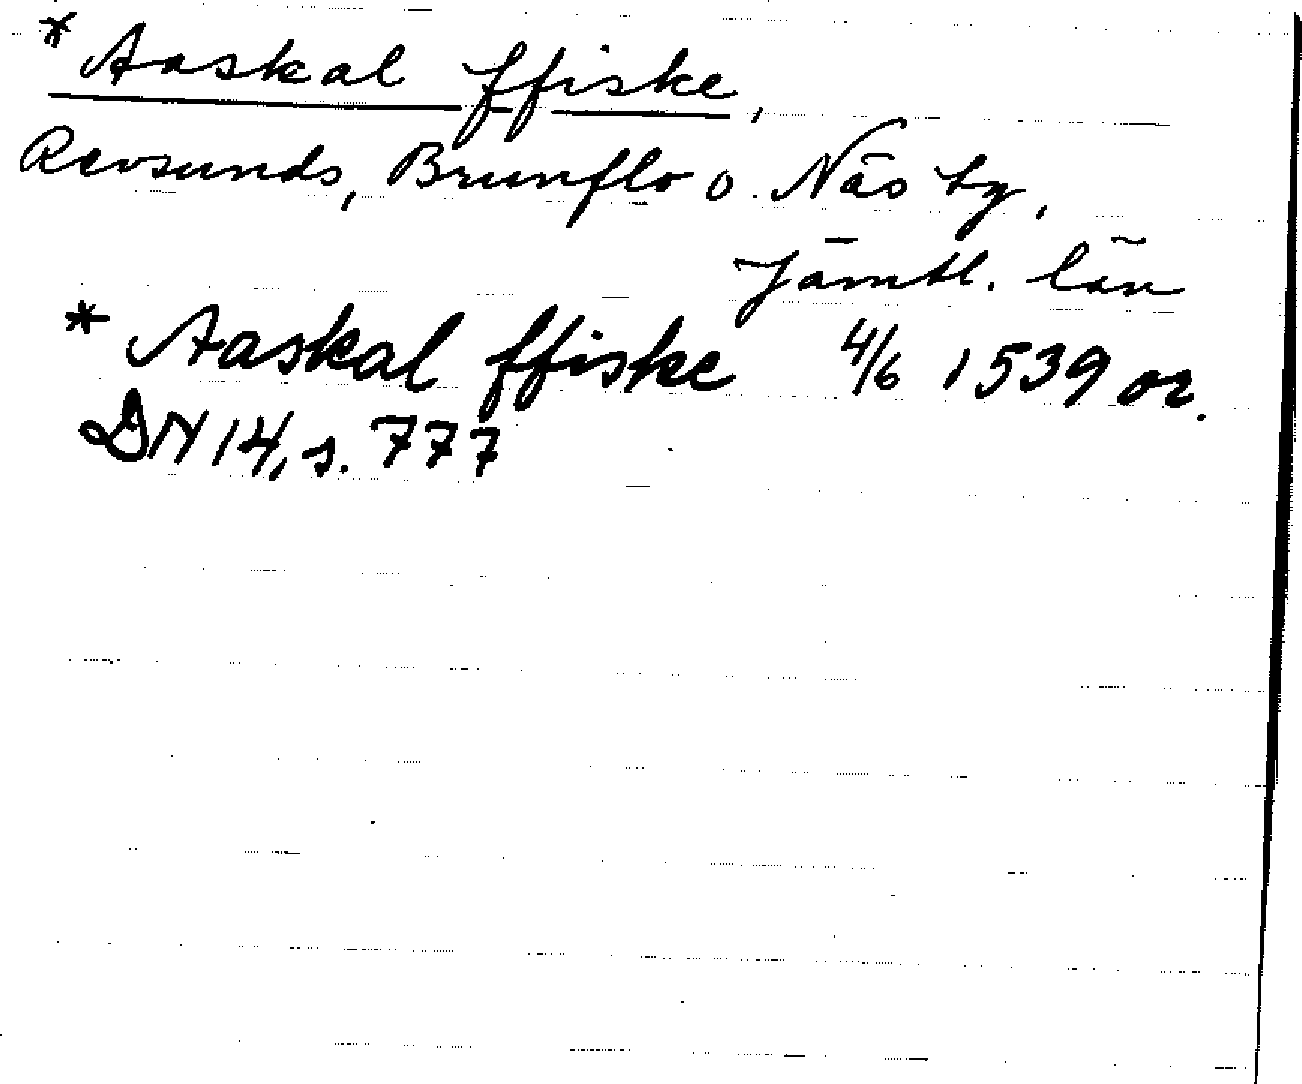 * Aaskal ffiske,
Revsunds, Brunflo o. Näs tg,
Jämtl. län
* Aaskal ffiske 4/6 1539 or.
DN 14, s. 777